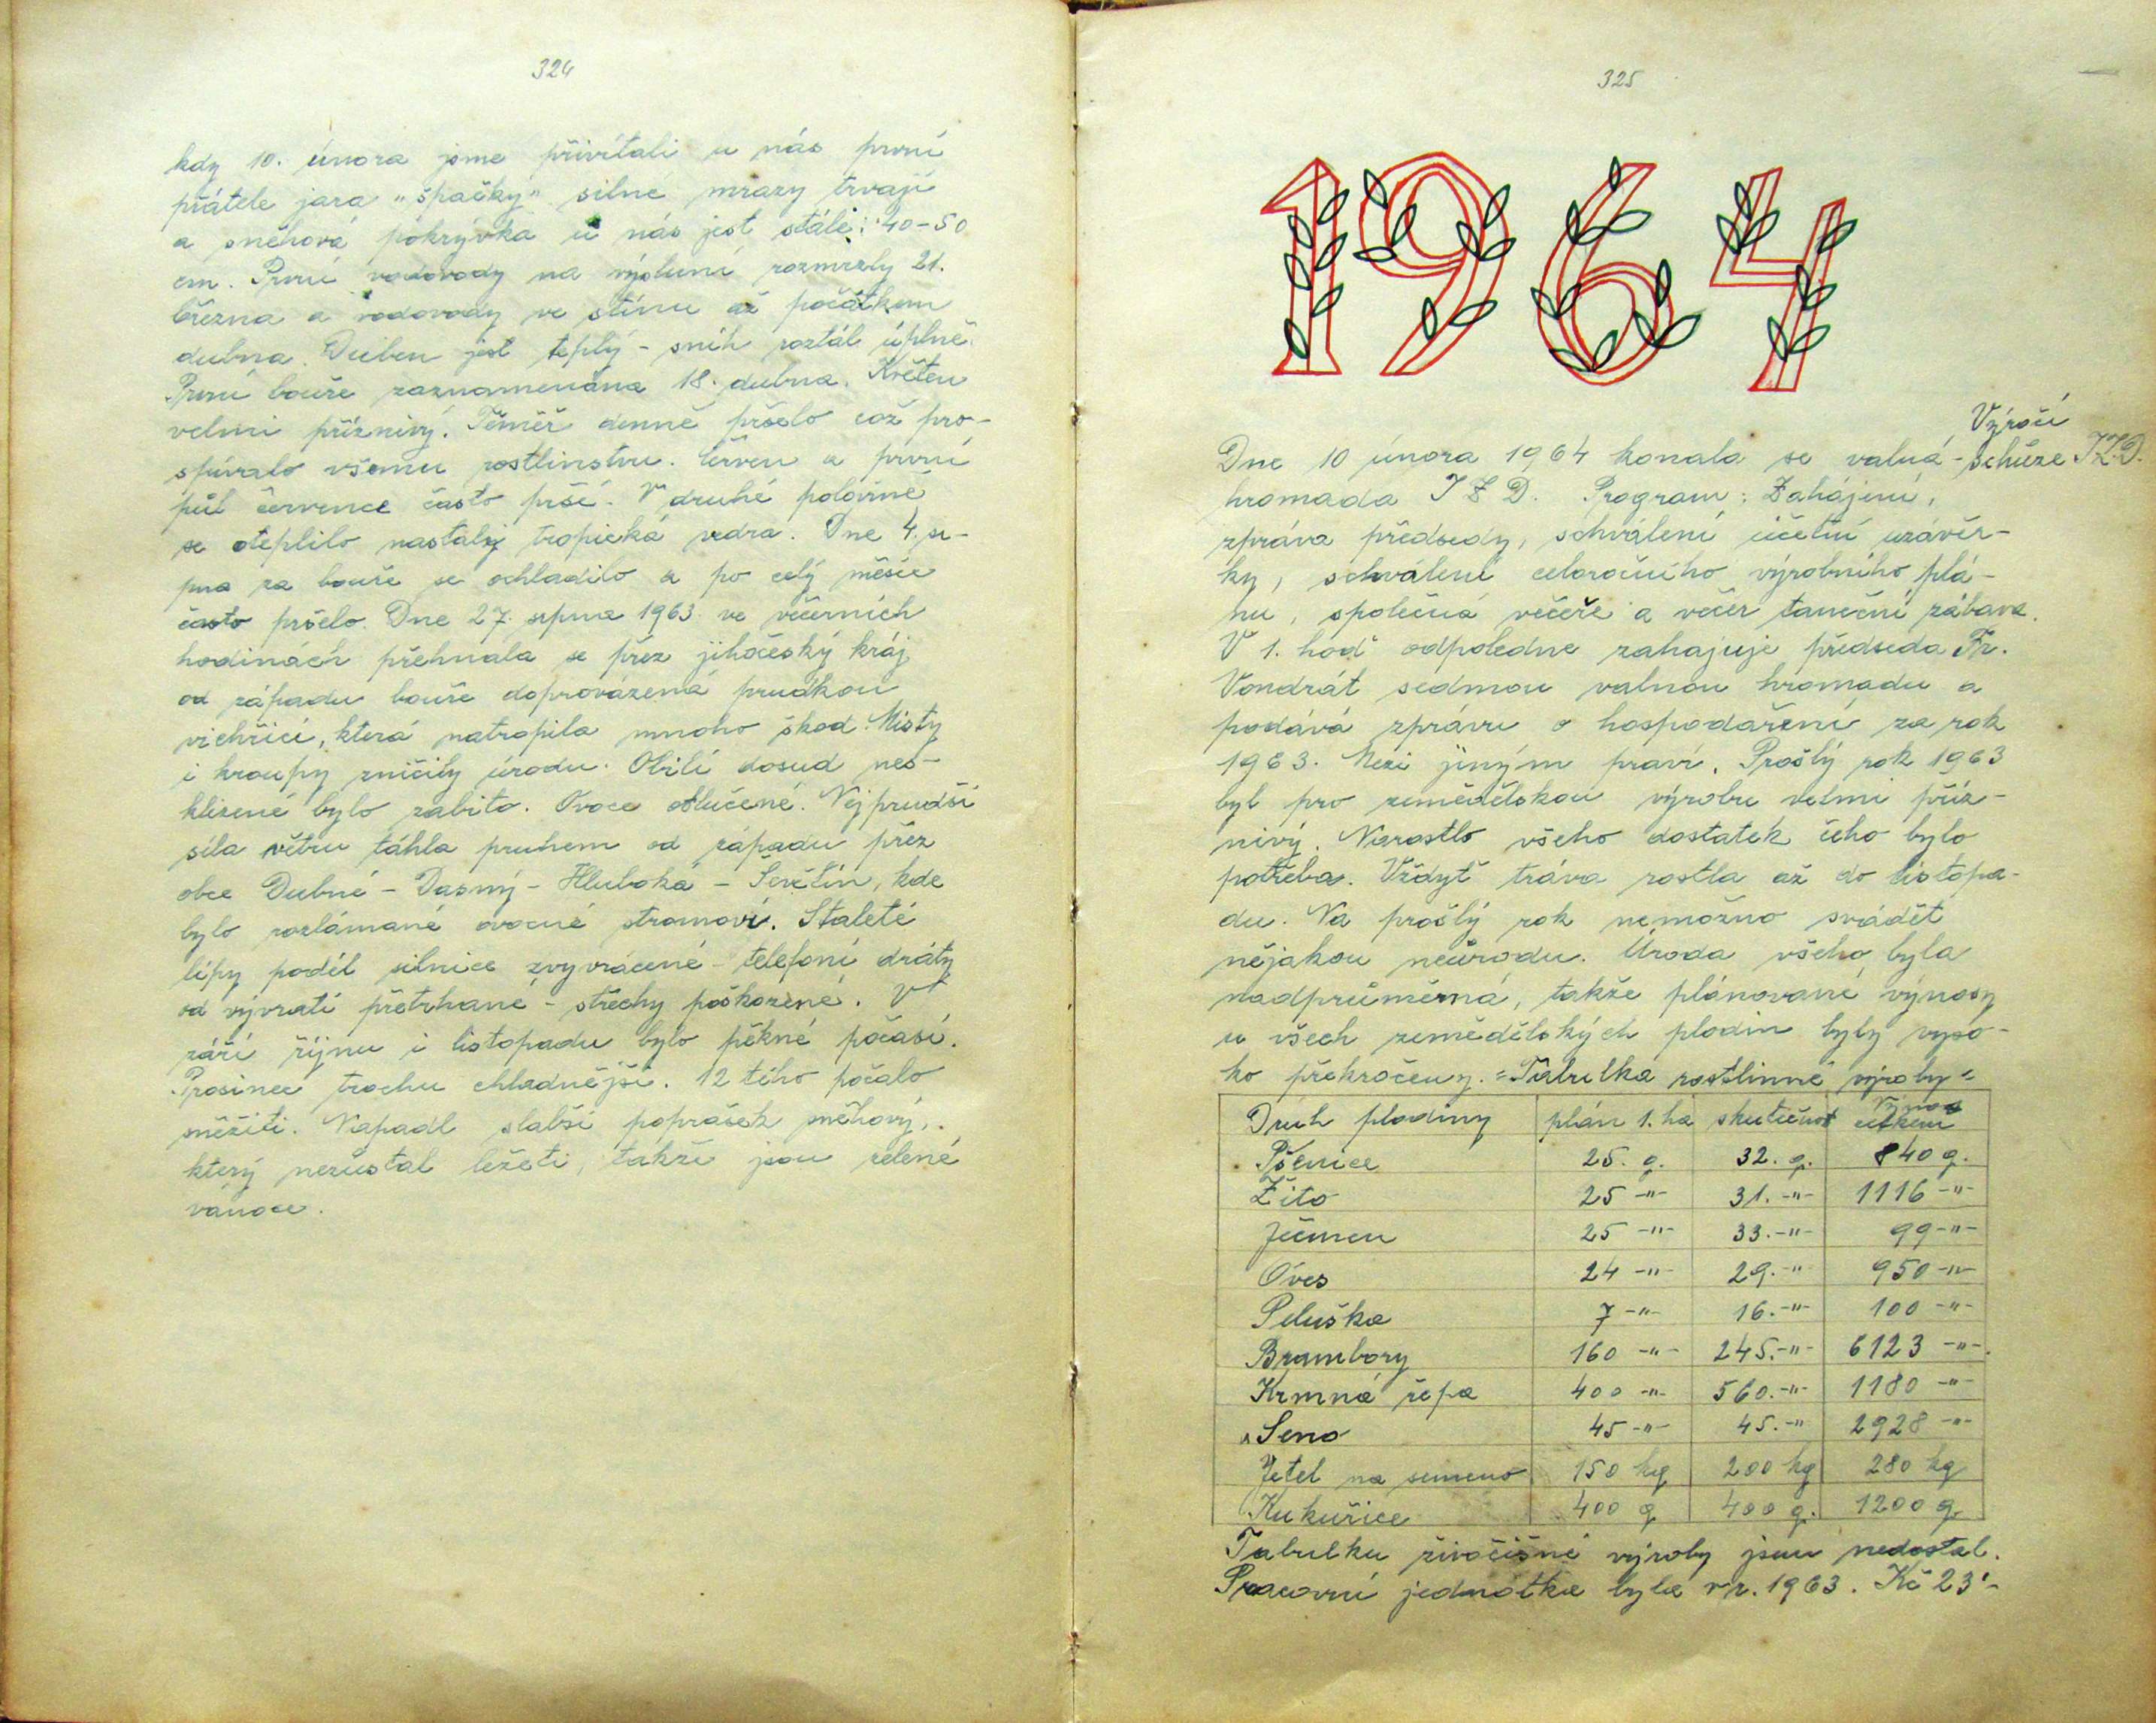 324
kdy 10. února jsme přivítali u nás první
přátele jara „špačky" silné mrazy trvají
a sněhová pokrývka u nás jest stále: 40-50
cm. První vodovody na výsluní rozmrzly 21.
března a vodovody ve stínu až počátkem
dubna. Duben jest teplý - sníh roztál úplně.
První bouře zaznamenána 18. dubna. Květen
velmi příznivý. Téměř denně pršelo což pro-
spívalo všemu rostlinstvu. Červen a první
půl července často prší. V druhé polovině
se oteplilo nastaly tropická vedra. Dne 4. sr-
pna za bouře se ochladilo a po celý měsíc
často pršelo. Dne 27. srpna 1963 ve večerních
hodinách přehnala se přez jihočeský kraj
od západu bouře doprovázená prudkou
vichřicí, která natropila mnoho škod. Místy
i kroupy zničily úrodu. Obilí dosud nes-
klizené bylo zabito. Ovoce otlučené. Nejprudší
síla větru táhla pruhem od západu přez
obce Dubné - Dasný - Hluboká - Ševětín, kde
bylo rozlámané ovocné stromoví. Staleté
lípy podél silnice zvyvrácené - telefoní dráty
od vývratí přetrhané - střechy poškozené. V
září říjnu i listopadu bylo pěkné počasí.
Prosinec trochu chladnější. 12 tého počalo
sněžiti. Napadl slabší poprašek sněhový,
který nezůstal ležeti, takže jsou zelené
vánoce.
325
1964
Výroční
Dne 10 února 1964 konala se valná - schůze JZD.
hromada JZD. Program: Zahájení,
zpráva předsedy, schválení účetní uzávěr-
ky, schválení celoročního výrobního plá-
nu, společná večeře a večer taneční zábava.
V 1. hod odpoledne zahajuje předseda Fr.
Vondrát sedmou valnou hromadu a
podává zprávu o hospodaření za rok
1963. Mezi jiným praví. Prošlý rok 1963
byl pro zemědělskou výrobu velmi příz-
nivý. Narostlo všeho dostatek čeho bylo
potřeba. Vždyť tráva rostla až do listopa-
du. Na prošlý rok nemožno svádět
nějakou neúrodu. Úroda všeho byla
nadprůměrná, takže plánované výnosy
u všech zemědělských plodin byly vyso-
ko překročeny. = Tabulka rostlinné výroby =
Druh plodiny plán 1. ha skutečnost Výnos celkem
Pšenice 25. q. 32. q. 840 q.
Žito 25 -"- 31. -"- 1116 -"-
Ječmen 25 -"- 33. -"- 99 -"-
Oves 24 -"- 29. -"- 950 -"-
Peluška 7 -"- 16. -"- 100 -"-
Brambory 160 -"- 245. -"- 6123 -"-
Krmná řepa 400 -"- 560. -"- 1180 -"-
Seno 45 -"- 45. -"- 2928 -"-
Jetel na semeno 150 kg 200 kg 280 kg
Kukuřice 400 q 400 q. 1200 q.
Tabulku živočišné výroby jsem nedostal.
Pracovní jednotka byla v r. 1963. Kč 23'-